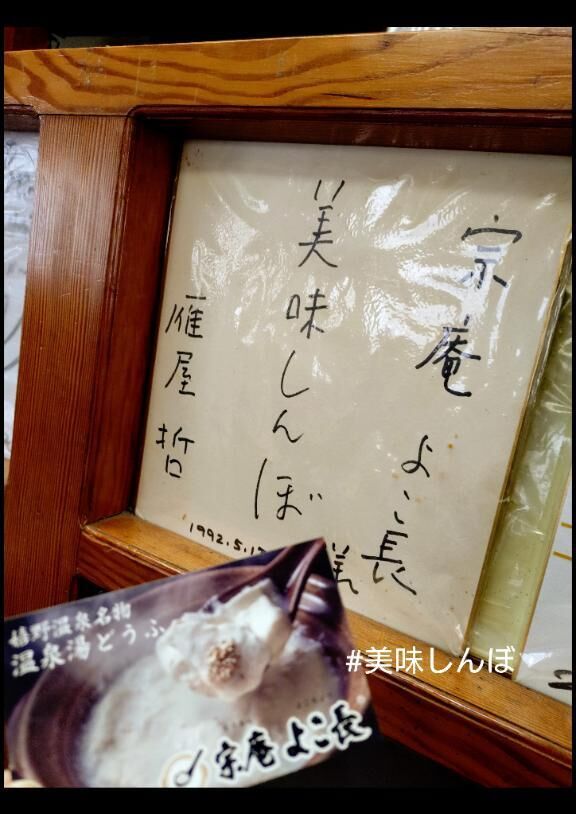 宗庵 よこ長
様
美味しんぼ
雁屋 哲
1992.5.17
嬉野温泉名物
温泉湯どうふ
宗庵よこ長
#美味しんぼ